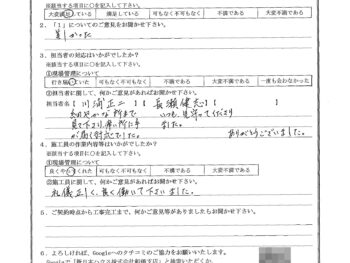 ※該当する項目に○を記入して下さい。
大変満足していた 満足している 可もなく不可もなく 不満である 大変不満である
2．「1」についてのご意見をお聞かせ下さい。
3．担当者の対応はいかがでしたか？
※該当する項目に○を記入して下さい。
①現場管理について
行き届いていた 可もなく不可もなく 不満である 大変不満である 一度も会わなかった
②担当者に関して、何かご意見があればお聞かせ下さい。
担当者名【川浦正二】【長瀬健志】
細やかな所まで いつも、見守ってくださり
見て下さり、痛い所に手 ました。
が届く対応でした。 ありがとうございました。
4．施工員の作業内容等はいかがでしたか？
※該当する項目に○を記入して下さい。
①現場管理について
良くやってくれた 可もなく不可もなく 不満である 大変不満である
②施工員に関して、何かご意見があればお聞かせ下さい。
礼儀正しく、良く働いて下さいました。
5．ご契約時点から工事完工まで、何かご意見等がありましたらお聞かせ下さい。
6．よろしければ、Googleへのクチコミのご協力をお願いいたします。